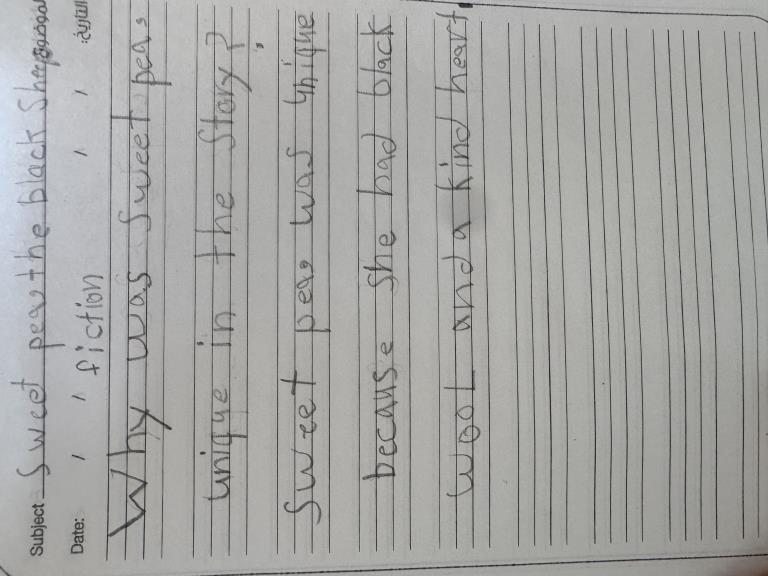 Subject Sweet pea the black Sheep
Date: / / / / التاريخ:
fiction
Why was Sweet pea
unique in the Story?
Sweet pea was unique
because she had black
wool and a kind heart